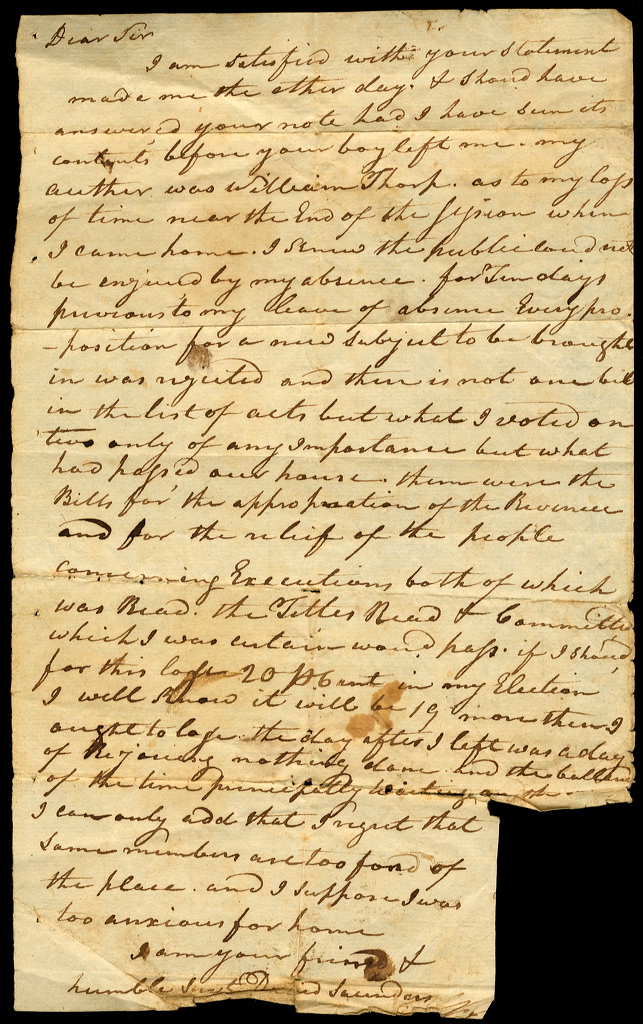 Dear Sir
I am satisfied with your statement
made me the other day. & should have
answered your note had I have seen its
contents before your boy left me. my
auther was William Thorp. as to my loss
of time near the End of the Session when
I came home. I knew the public coud not
be enjured by my absence. for Ten days
previous to my leave of absence Every pro-
-position for a new subject to be brought
in was rejected and ther is not one bill
in the list of acts but what I voted on
two only of any Importance but what
had passed our house. them were the
Bills for the appropriation of the Revenue
and for the relief of the people
concerning Executions both of which
was Read. the Titles Read & Committed
which I was certain woud pass. if I should
for this lose 20 pr Cent in my Election
I will know it will be 19 more then I
ought to lose. the day after I left was a day
of Rejoicing nothing done and the ballance
of the time principally waiting on
I can only add that I regret that
some members are too fond of
the place. and I suppose I was
too anxious for home
I am your friend &
humble Servt David Saunders